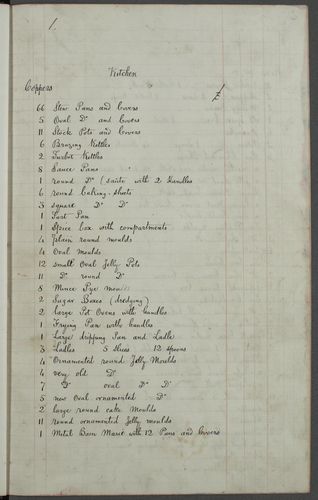 1.
Kitchen
Coppers
66 Stew Pans and Covers
5 Oval Do and Covers
11 Stock Pots and Covers
6 Brazing Kettles
2 Turbot Kettles
8 Sauce Pans
1 round Do (sauté with 2 Handles
6 round baking sheets
3 square Do Do
1 Tart Pan
1 Spice box with compartments
4 plain round moulds
4 Oval Moulds
12 small Oval Jelly Pots
11 Do round Do
8 Mince Pye moulds
2 Sugar Boxes (dredging)
2 large Pot Ovens with handles
1 Frying Pan with handles
1 Large dripping Pan and Ladle
3 Ladles 5 slices 12 spoons
4 Ornamented round Jelly Moulds
4 very old Do
7 Do oval Do Do
5 new Oval ornamented Do
2 large round cake Moulds
11 round ornamented Jelly moulds
1 Metal Bain Marie with 12 Pans and Covers